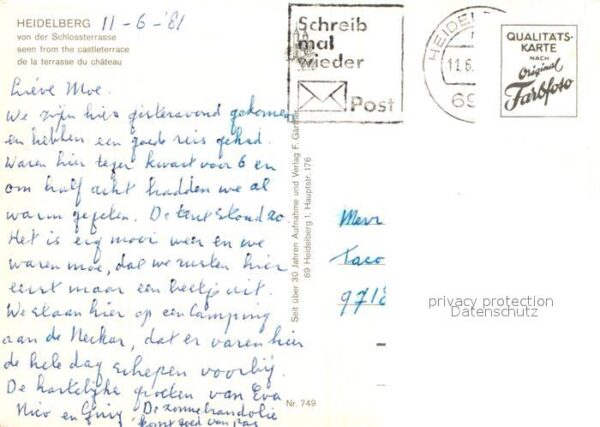 HEIDELBERG 11-6-'81
von der Schlossterrasse
seen from the castleterrace
de la terrasse du château
Lieve Moe.
We zijn hier gisteravond gekomen
en hebben een goede reis gehad.
Waren hier tegen kwart voor 6 en
om half acht hadden we al
warm gegeten. De tent stond zo.
Het is erg mooi weer en we
waren moe, dat we rusten hier
eerst maar een beetje uit.
We staan hier op een Camping
aan de Neckar, dat er varen hier
de hele dag schepen voorbij.
De hartelijke groeten van Eva
Nico en De zonnebrandolie
komt goed van pas
Seit über 30 Jahren Aufnahme und Verlag F. Gärtner
69 Heidelberg 1, Hauptstr. 176
Nr. 749
Schreib
mal
wieder
Post
HEIDEL
11.6.
69
QUALITÄTS-
KARTE
NACH
Original
Farbfoto
Mevr
Taco
9718
privacy protection
Datenschutz